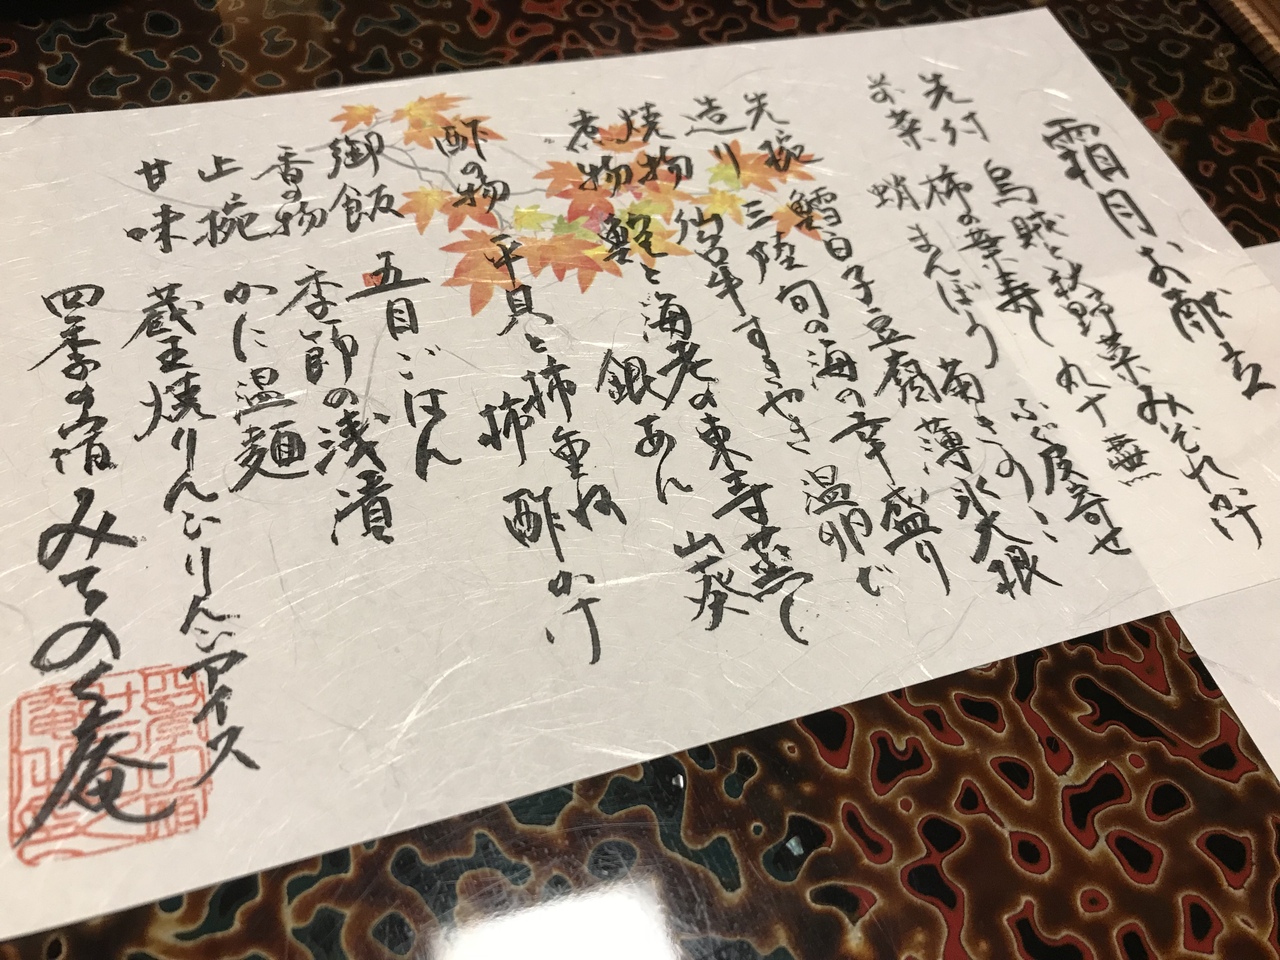 霜月お献立
先付 烏賊と秋野菜みぞれかけ
お菜 柿の葉寿し 丸十 蕪 ふぐ皮寄せ
蛸 まんぼう 菊きのこ 薄氷大根
先椀 鱈白子豆腐
造り 三陸旬の海の幸盛り
焼物 仙台牛すきやき 温卵で
煮物 蟹と海老の東寺蒸し
銀あん 山葵
酢の物 平貝と柿重ね
柿酢かけ
御飯 五目ごはん
香の物 季節の浅漬
止椀 かに温麺
甘味 蔵王焼りんごりんごアイス
四季の宿 みちのく庵